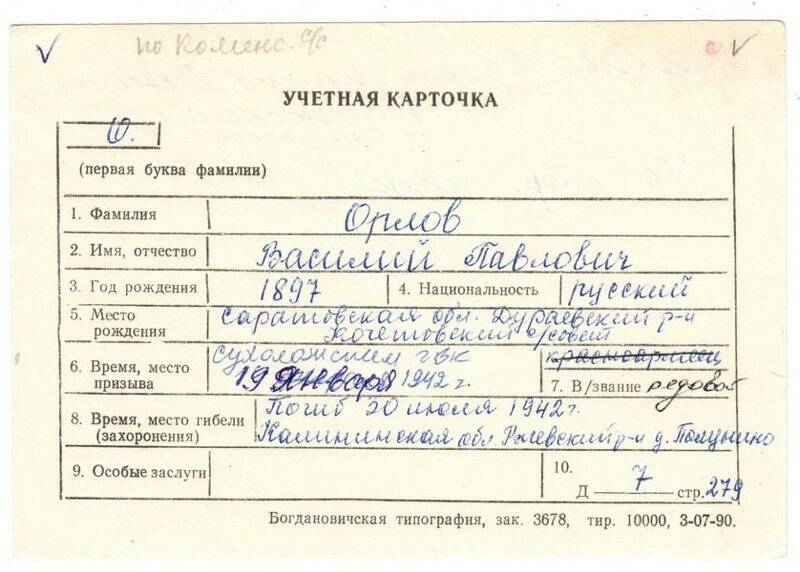 по Коминс. с/с
УЧЕТНАЯ КАРТОЧКА
О.
(первая буква фамилии)
1. Фамилия Орлов
2. Имя, отчество Василий Павлович
3. Год рождения 1897 4. Национальность русский
5. Место рождения Саратовская обл. Дураевский р-н
Кочетовский с/совет
6. Время, место призыва Сухоложским ГВК красноармеец
19 Января 1942 г. 7. В/звание рядовой
8. Время, место гибели Погиб 30 июля 1942 г.
(захоронения) Калининская обл Ржевский р-н д. Полунино
9. Особые заслуги 10.
Д — 7 — стр. 279
Богдановичская типография, зак. 3678, тир. 10000, 3-07-90.